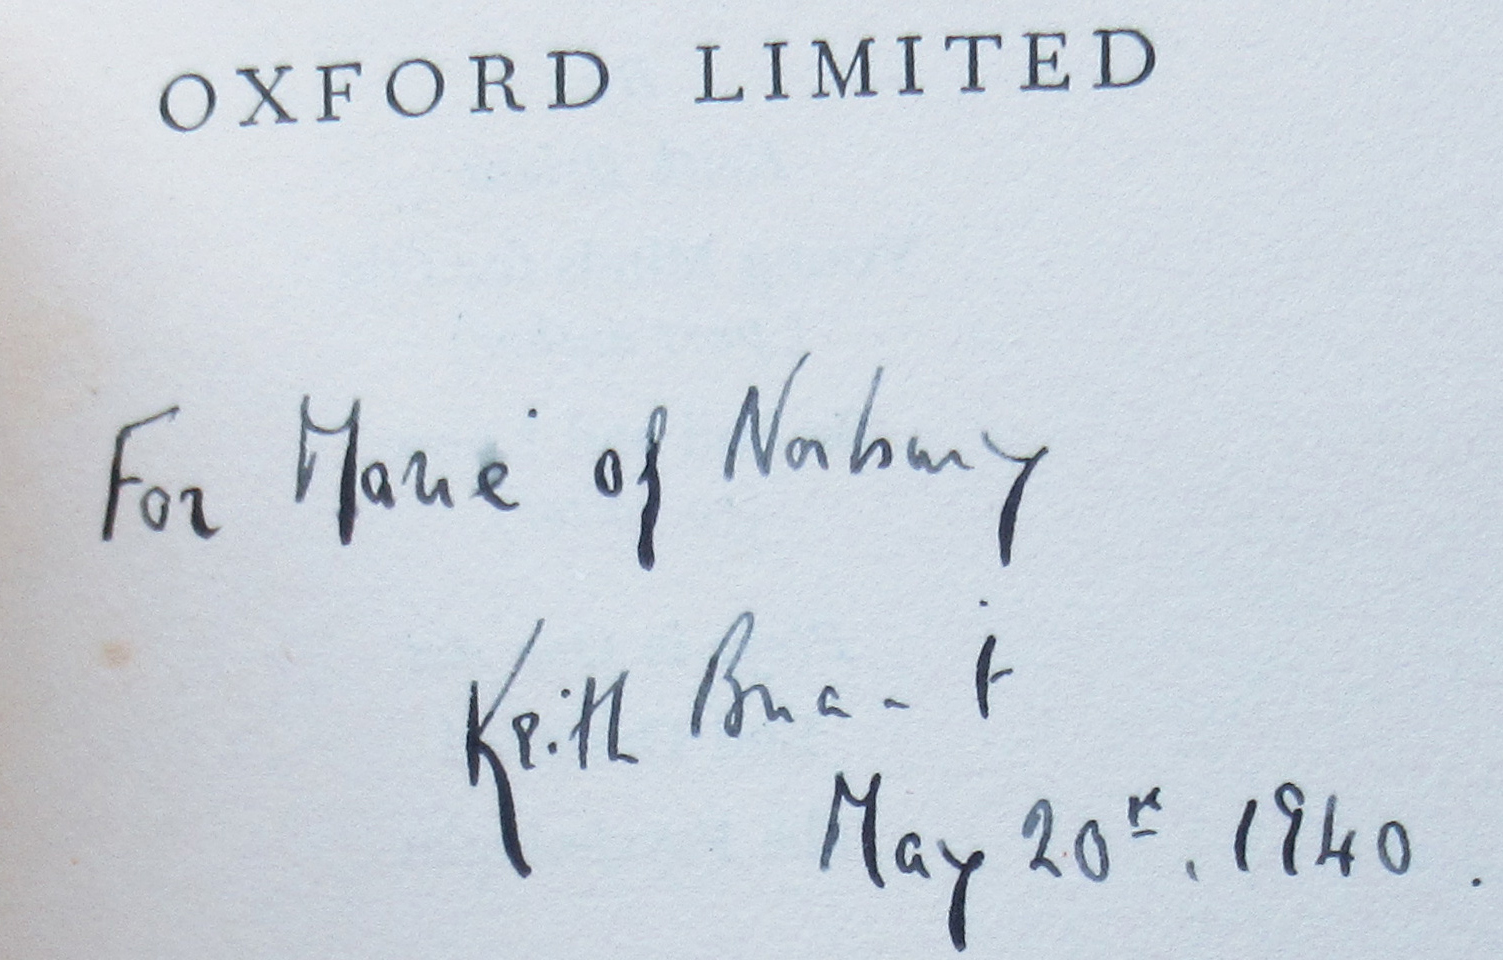 OXFORD LIMITED
For Marie of Norbury
Keith Briant
May 20th. 1940.